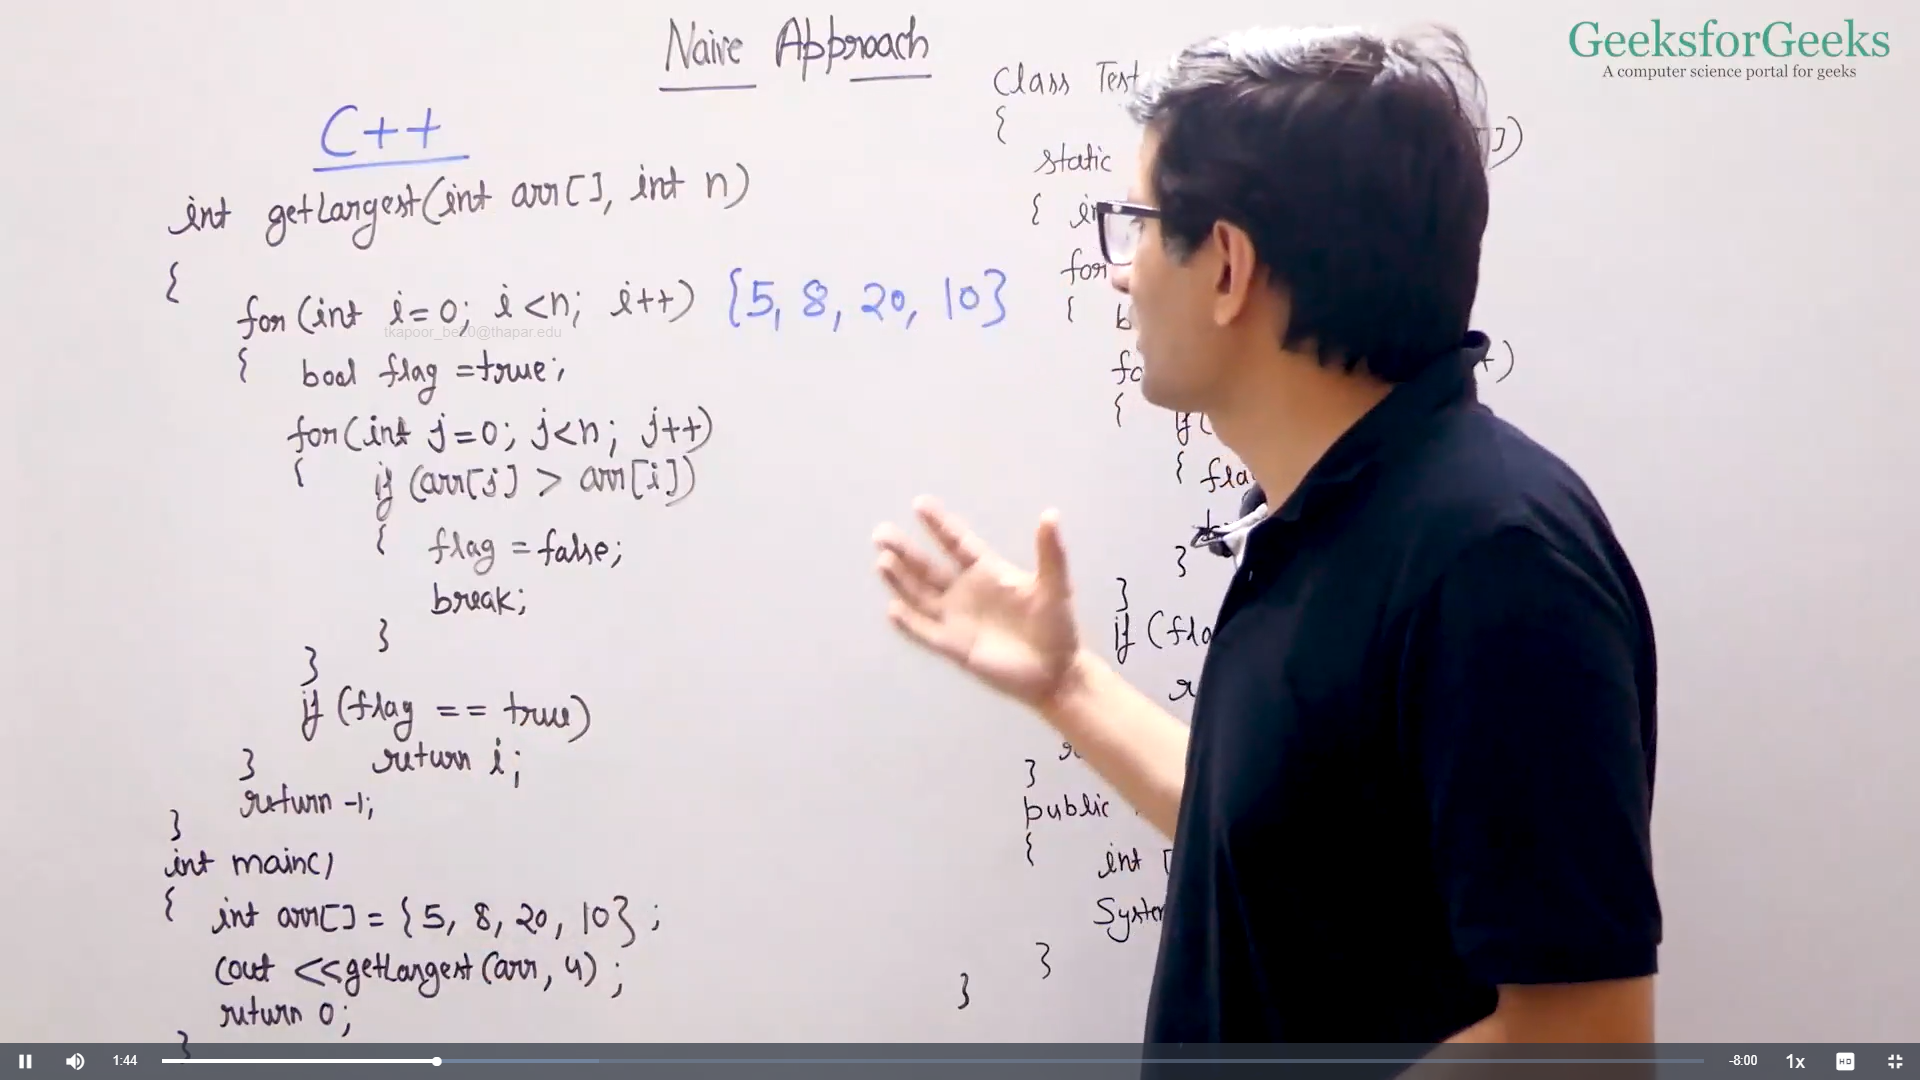 Naive Approach
GeeksforGeeks
A computer science portal for geeks
C++
int getLargest(int arr[], int n)
{
for(int i=0; i<n; i++) {5, 8, 20, 10}
tkapoor_be20@thapar.edu
{ bool flag =true;
for(int j=0; j<n; j++)
{ if (arr[j] > arr[i])
{ flag =false;
break;
}
}
if (flag == true)
} return i;
return -1;
}
int main()
{ int arr[] = {5, 8, 20, 10} ;
cout <<getLargest(arr, 4) ;
return 0;
}
Class Test
{
static
{
for
{
{
if(
{
}
}
if (
}
public
{
int [
}
}
1:44
-8:00
1x
HD